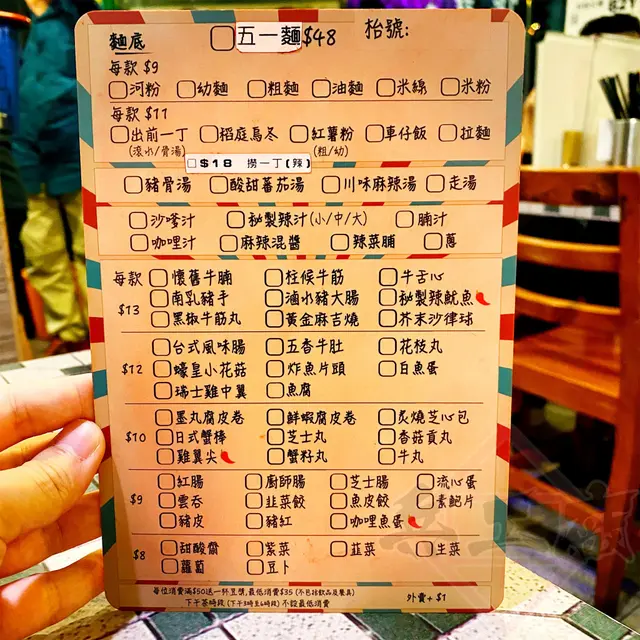 麵底 五一麵$48 枱號:
每款 $9
河粉 幼麵 粗麵 油麵 米線 米粉
每款 $11
出前一丁 稻庭烏冬 紅薯粉 車仔飯 拉麵
(滾水/骨湯) (粗/幼)
$18 撈一丁(辣)
豬骨湯 酸甜蕃茄湯 川味麻辣湯 走湯
沙嗲汁 秘製辣汁(小/中/大) 腩汁
咖哩汁 麻辣混醬 辣菜脯 蔥
每款 懷舊牛腩 柱候牛筋 牛舌心
$13 南乳豬手 滷水豬大腸 秘製辣魷魚
黑椒牛筋丸 黃金麻吉燒 芥末沙律球
台式風味腸 五香牛肚 花枝丸
$12 蠔皇小花菇 炸魚片頭 白魚蛋
瑞士雞中翼 魚腐
墨丸腐皮卷 鮮蝦腐皮卷 炙燒芝心包
$10 日式蟹棒 芝士丸 香菇貢丸
雞翼尖 蟹籽丸 牛丸
紅腸 廚師腸 芝士腸 流心蛋
$9 雲吞 韭菜餃 魚皮餃 素鮑片
豬皮 豬紅 咖哩魚蛋
$8 甜酸齋 紫菜 韮菜 生菜
蘿蔔 豆卜
每位消費滿$50送一杯豆漿,最低消費$35 (不包括飲品及餐具)
下午茶時段 (下午3時至6時段) 不設最低消費 外賣+$1